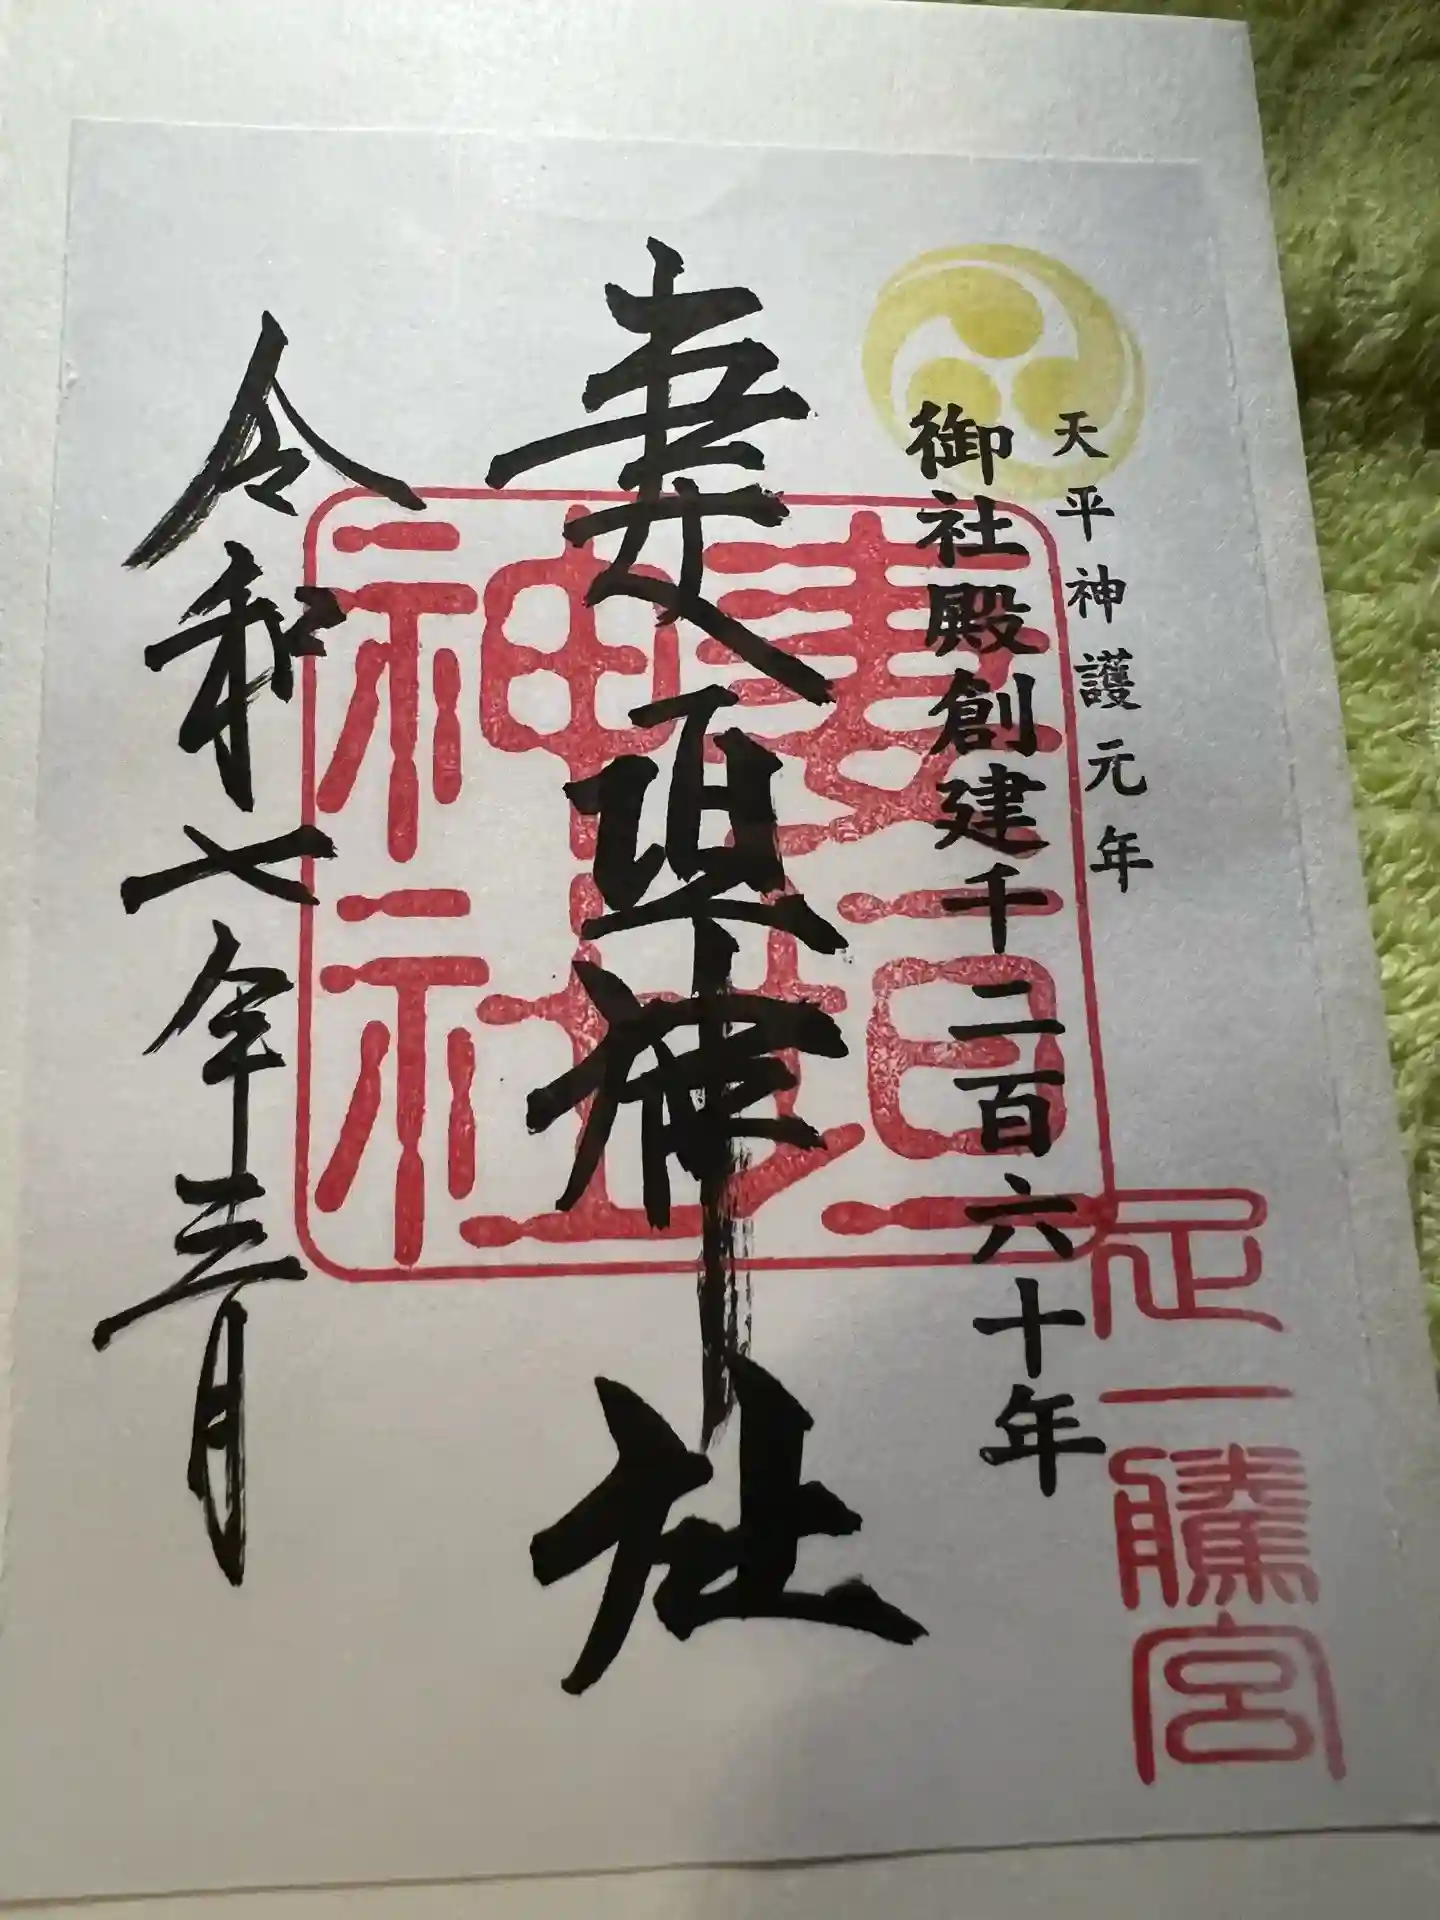 天平神護元年
御社殿創建千二百六十年
足一騰宮
妻垣神社
妻垣
神社
令和七年三月